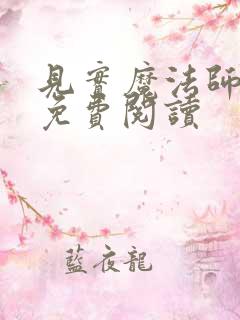 見實魔法師
免費閱讀
藍夜龍